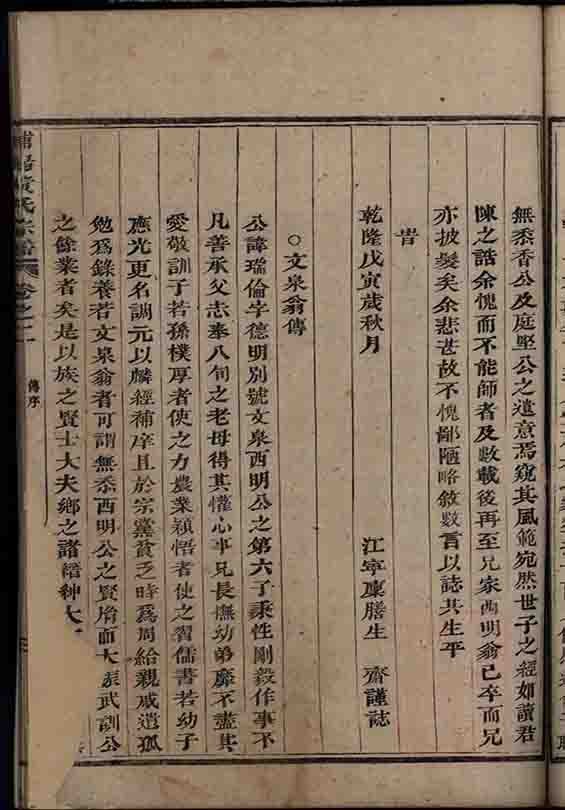 無忝香公及庭堅公之遺意焉窺其風範宛然世子之經如讀君
陳之誥余愧而不能師者及數載後再至兄家西明翁已卒而兄
亦披髮矣余悲甚故不愧鄙陋略敘數言以誌其生平
昔
乾隆戊寅歲秋月 江寧廩膳生 齋謹誌
○文泉翁傳
公諱瑞倫字德明別號文泉西明公之第六子秉性剛毅作事不
凡善承父志奉八旬之老母得其懽心事兄長撫幼弟靡不盡其
愛敬訓子若孫樸厚者使之力農業穎悟者使之習儒書若幼子
應光更名調元以麟經補庠且於宗黨貧乏時為周給親戚遺孤
勉為錄養若文泉翁者可謂無忝西明公之賢胤而大 武訓公
之餘業者矣是以族之賢士大夫鄉之諸縉紳大
黃氏宗譜 卷之二 傳序